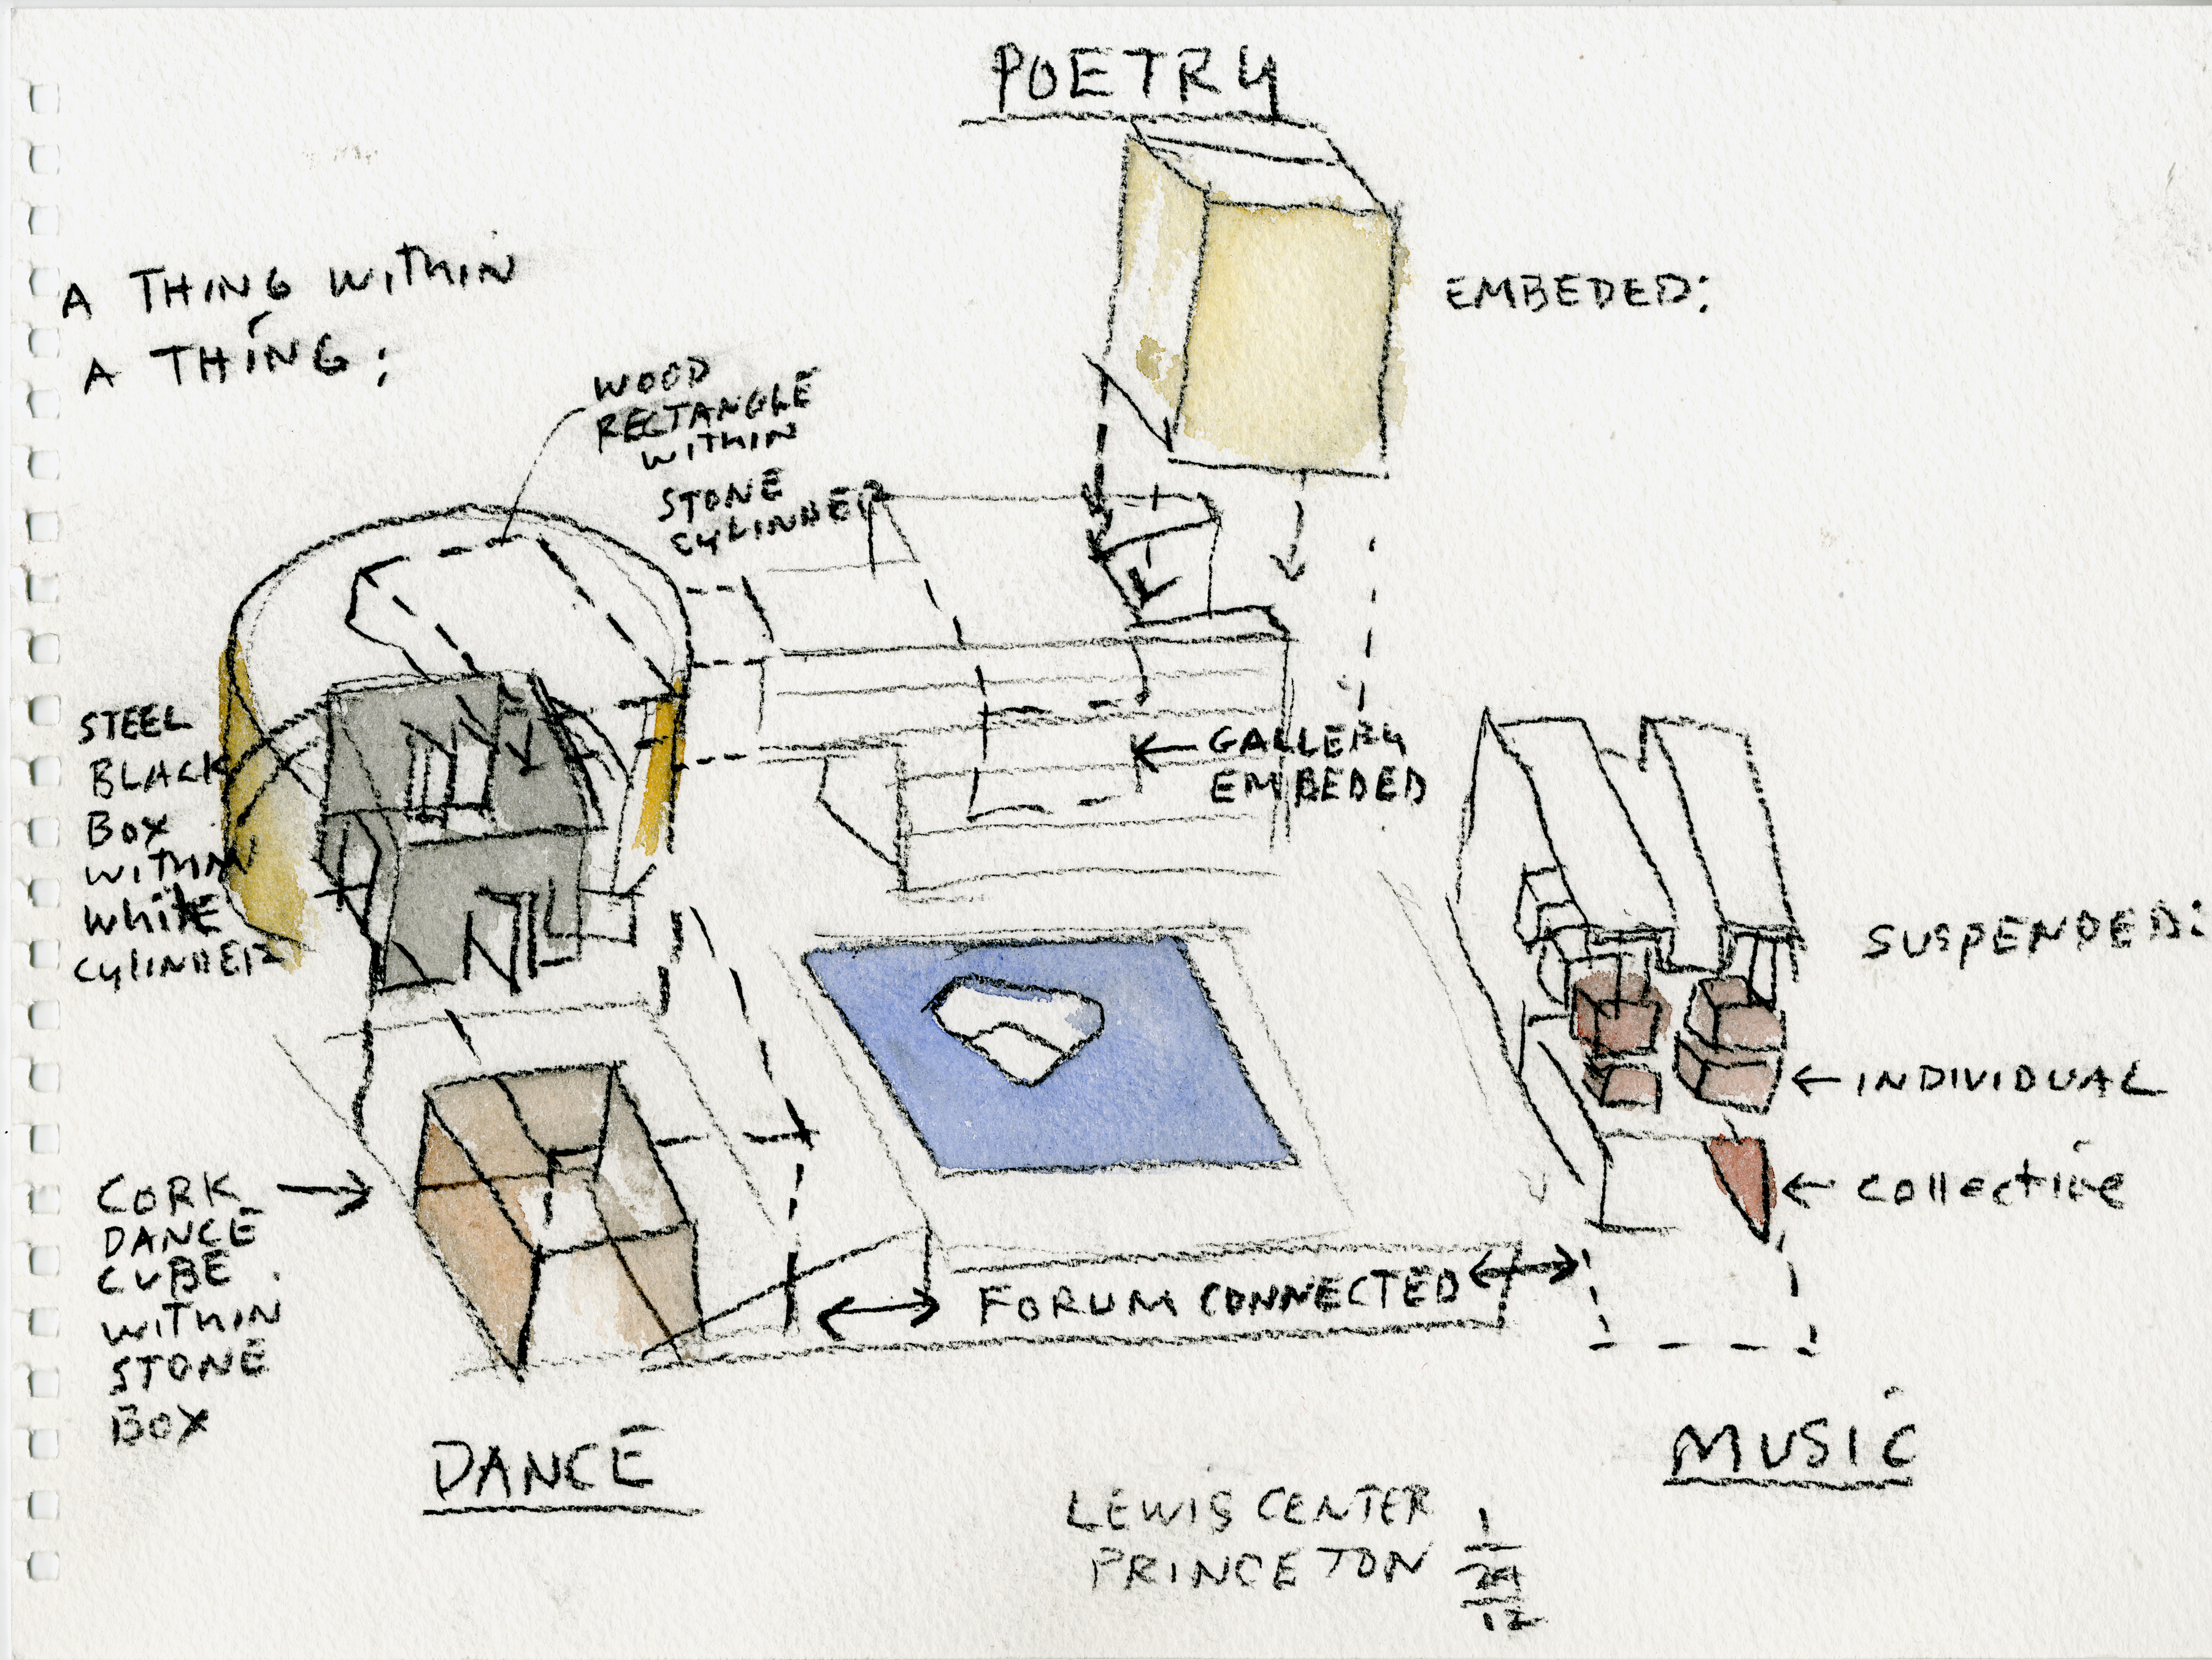 POETRY
A THING WITHIN
A THING;
EMBEDED:
WOOD
RECTANGLE
WITHIN
STONE
CYLINDER
STEEL
BLACK
BOX
WITHIN
White
CYLINDER
← GALLERY
EMBEDED
SUSPENDED:
← INDIVIDUAL
← Collective
CORK →
DANCE
CUBE
WITHIN
STONE
BOX
↔ FORUM CONNECTED ↔
DANCE
MUSIC
LEWIS CENTER
PRINCETON
1
24
12